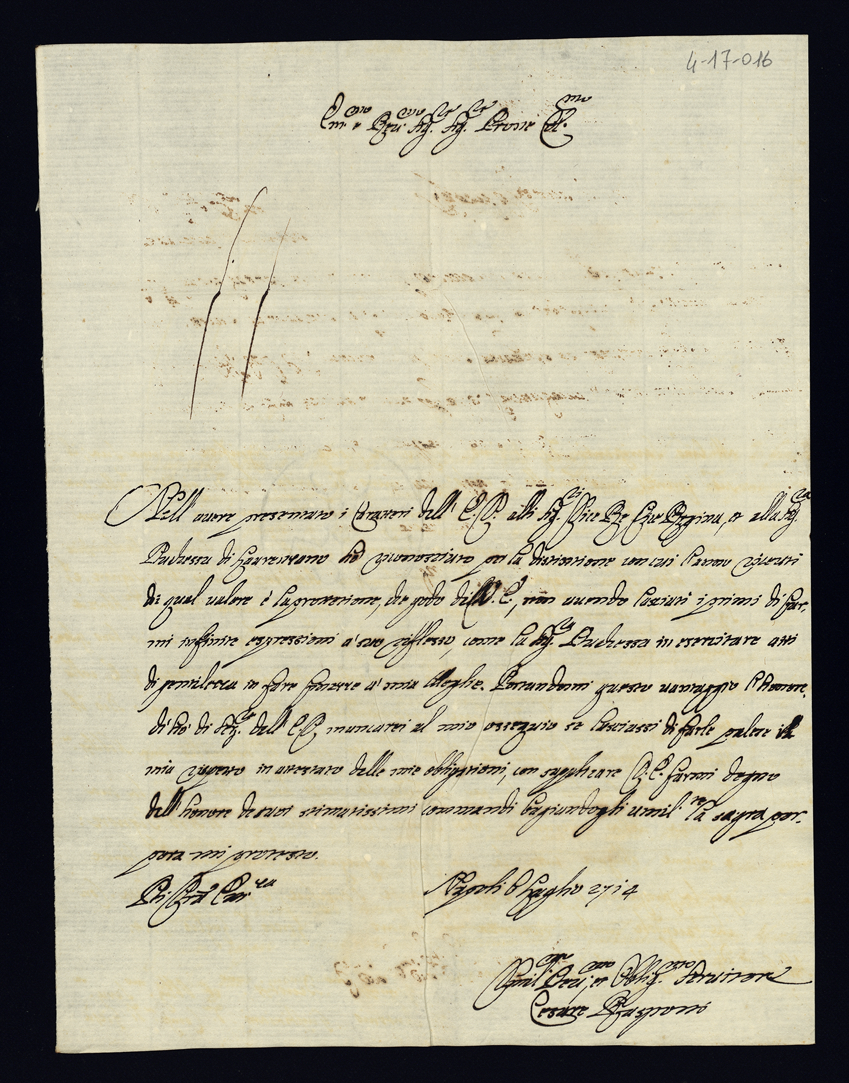 4-17-016
Em.mo e Reu.mo Sig.re Sig.re Prone Col.mo
Nell' auere presentato i Caratteri dell' E.V. alli Sig.ri Vice Re e Vice Regina, et alla Sig.ra
Duchessa di hò riconosciuto per la distintione con cui hanno
di qual valore è la protetione, che godo dell' V.E., non auendo lasciati i primi di far,
mi infinite espressioni a' suo riflesso, come la Sig.ra Duchessa in esercitare atti
di gentilezza in fare finezze a' mia Moglie. Portandomi questo vantaggio l'honore,
di dell' E.V. mancarei al mio ossequio se lasciassi di farle palese il
mio rispetto in attestato delle mie obligationi, con supplicare V.E. farmi degno
dell' honore de suoi stimatissimi commandi baciandogli umil.te la sagra por-
pora mi protesto.
Di Napoli 6 Luglio 1714
Umil.mo Deu.mo et Oblig.mo Seruitore
Cesare Rasponi